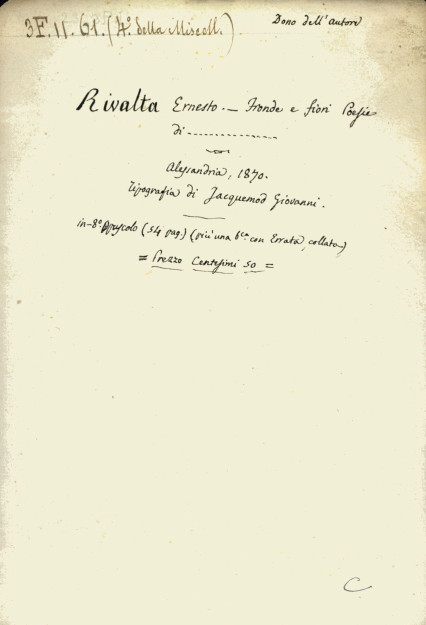 3F.11.61.(4º della Miscell.)
Dono dell'autore
Rivalta Ernesto.— Fronde e fiori Poesie
di --------------
Alessandria, 1870.
Tipografia di Jacquemod Giovanni.
in-8º. Opuscolo (54 pag) (più una bca con Errata, collata)
= Prezzo Centesimi 50 =
C